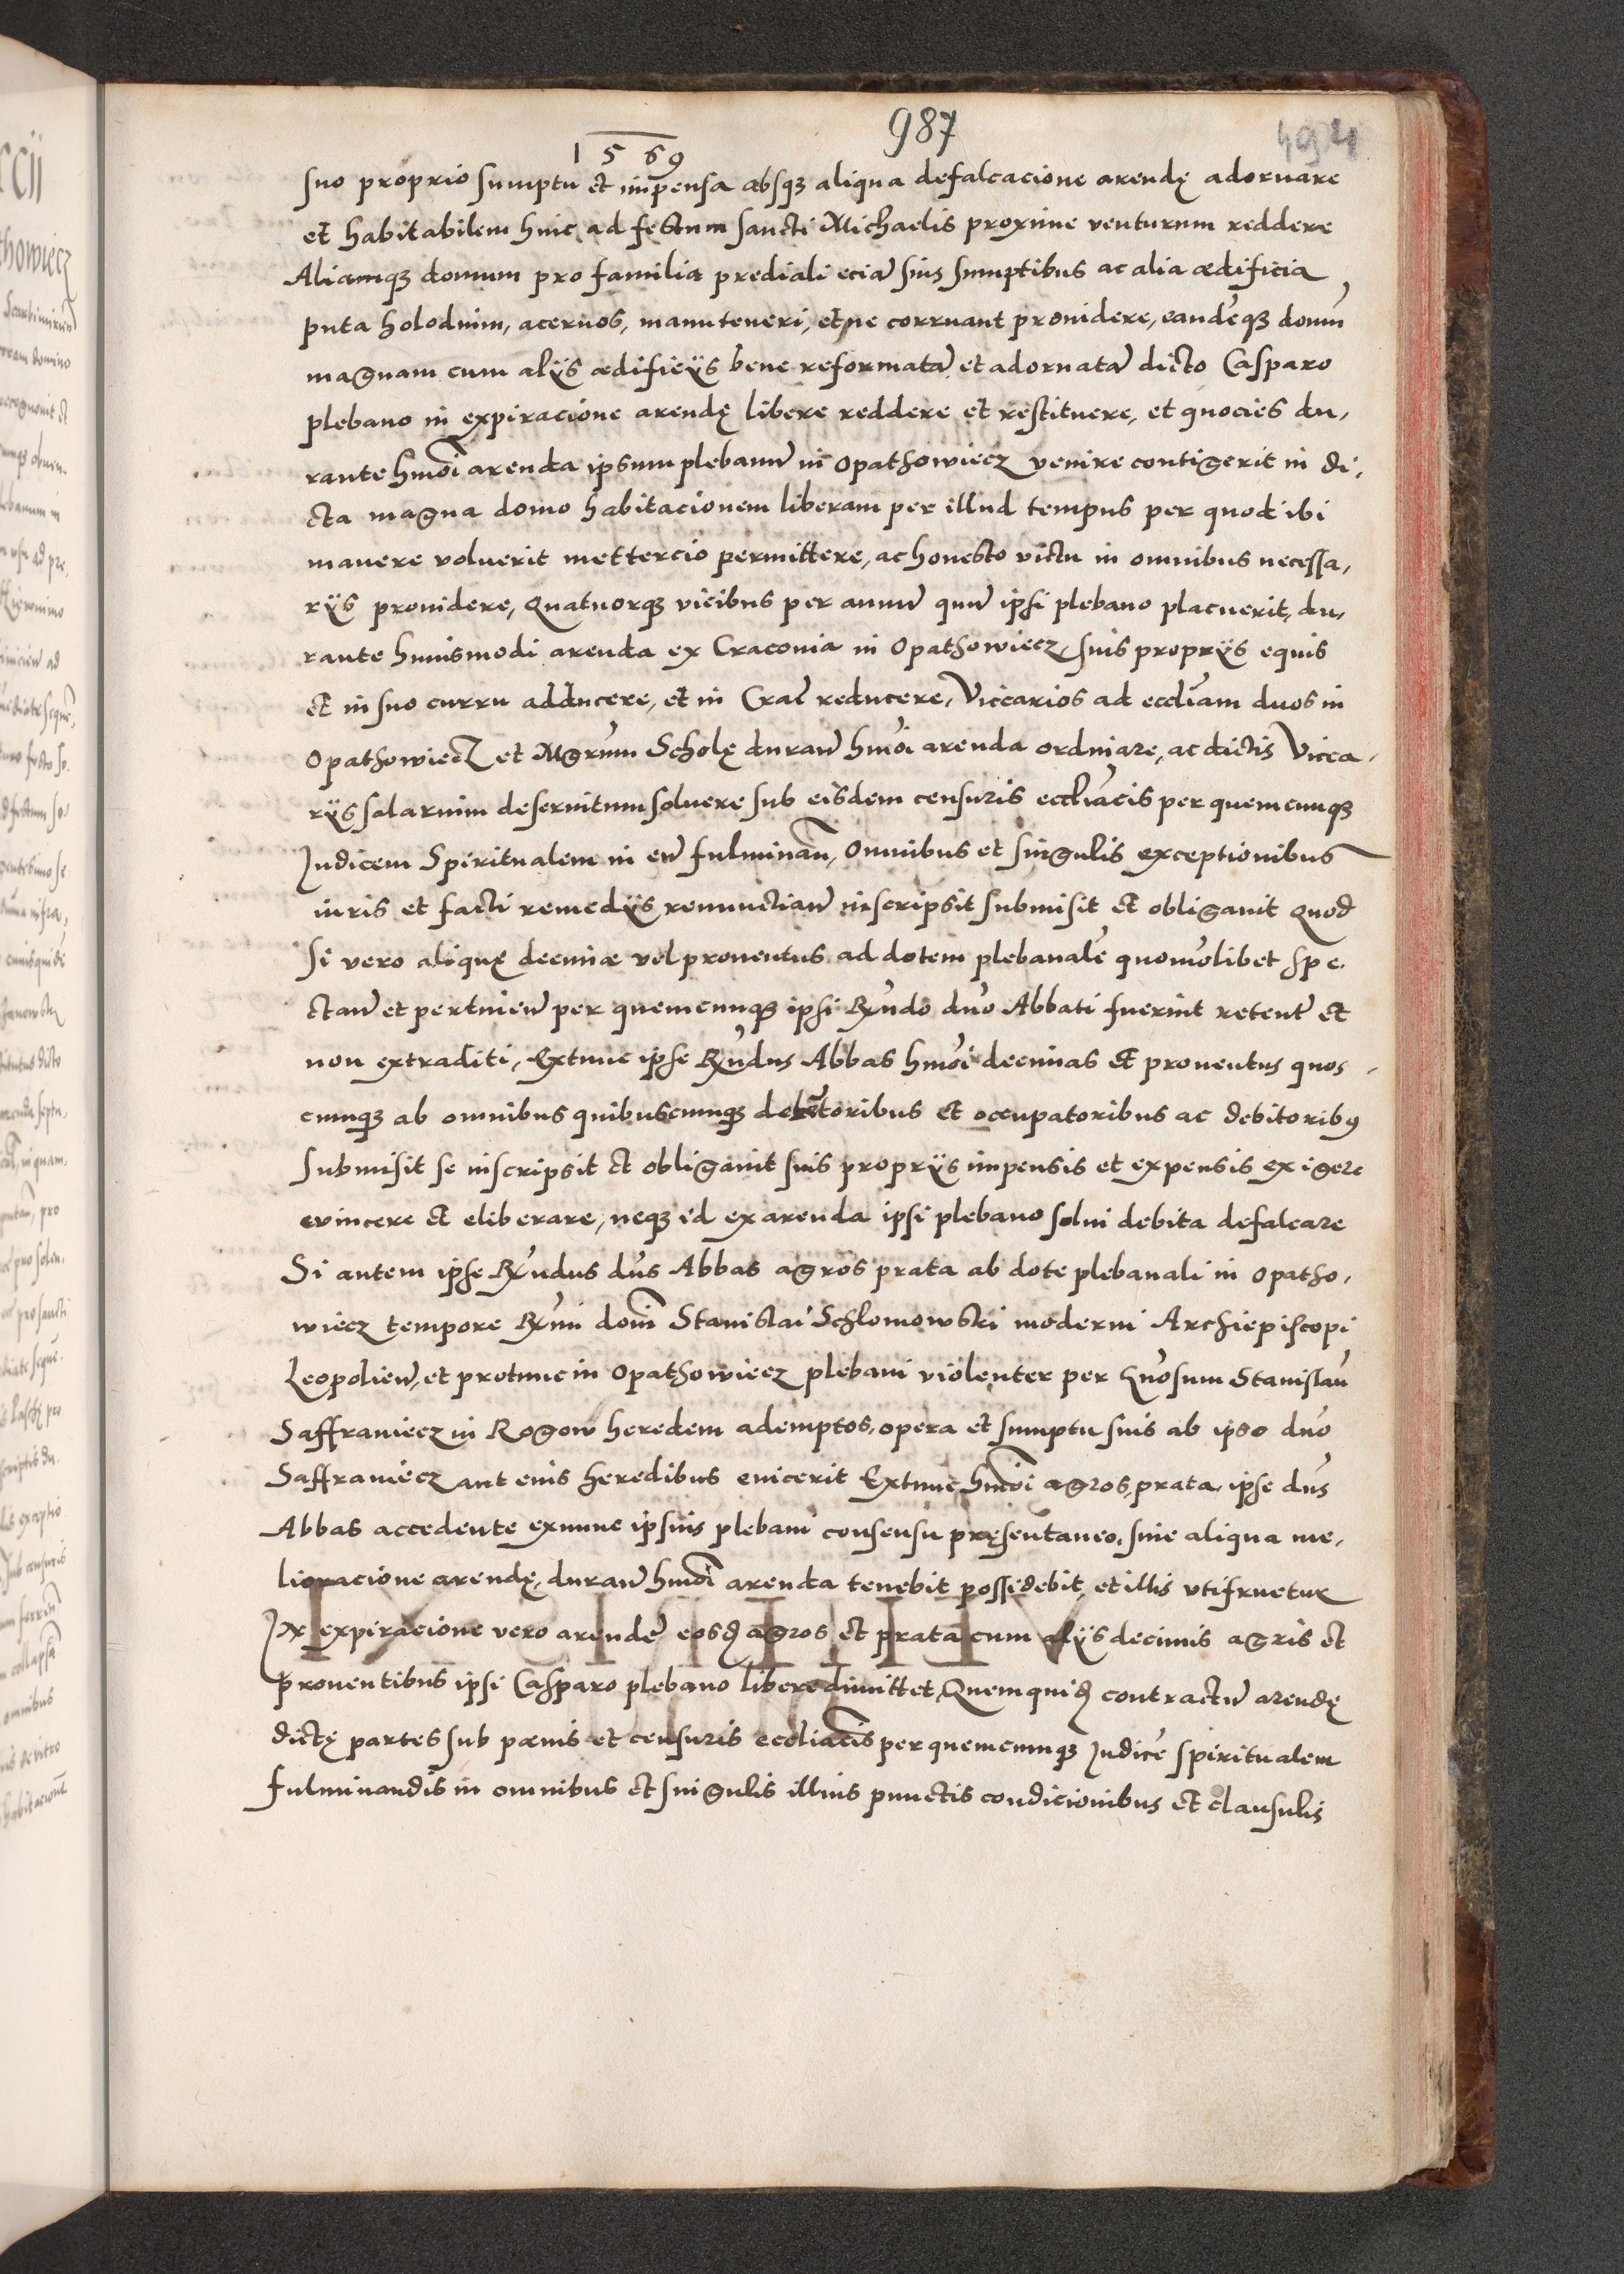 987
494
1569
suo proprio sumptu et impensa absqꝫ aliqua defalcacione arendę adornare
et habitabilem hinc ad festum sancti Michaelis proxime venturum reddere
Aliamqꝫ domum pro familia prediali eciā suis sumptibus ac alia ædificia
puta holodnim, acernos, manuteneri, et ne corruant prouidere, eandēqꝫ domū
magnam cum alijs ædificijs bene reformatā et adornatā dicto Casparo
plebano in expiracione arendę libere reddere et restituere, et quocies du,
rante hmōi arenda ipsum plebanū in Opathowiecz venire contigerit in di,
cta magna domo habitacionem liberam per illud tempus per quod ibi
manere voluerit mettercio permittere, ac honesto victu in omnibus necessa,
rijs prouidere, Quatuorqꝫ vicibus per annū quū ipsi plebano placuerit, du,
rante huiusmodi arenda ex Cracouia in Opathowiecz, suis proprijs equis
et in suo curru adducere, et in Crac̄ reducere, Viccarios ad eccliam̄ duos in
Opathowiecz et Mgrūm Scholę durañ hmōi arenda ordinare, ac dictis Vicca,
rijs salarium deseruitum soluere sub eisdem censuris eccliācis per quemcunqꝫ
Judicem Spiritualem in eū fulminañ, Omnibus et singulis exceptionibus
iuris et facti remedijs renunctiañ inscripsit submisit et obligauit Quod
Si vero aliquę decimæ vel prouentus ad dotem plebanalē quomōlibet spe,
ctañ et pertineñ per quemcunqꝫ ipsi Rñdo dño Abbati fuerint retent̄ et
non extraditi, Extunc ipse Rñdus Abbas hmōi decimas et prouentus quos,
cunqꝫ ab omnibus quibuscunqꝫ detētoribus et occupatoribus ac debitoribꝰ
submisit se inscripsit et obligauit suis proprijs impensis et expensis exigere
euincere et eliberare, neqꝫ id ex arenda ipsi plebano solui debita defalcare
Si autem ipse Rñdus dñs Abbas agros prata ab dote plebanali in Opatho,
wiecz tempore Rmi domī Stanislai Schlomowski moderni Archiepiscopi
Leopolieñ, et protunc in Opathowiecz plebani violenter per Gnōsum Stanislaū
Saffraniecz in Rogow heredem ademptos, opera et sumptu suis ab ipso dño
Saffraniecz aut eius heredibus euicerit Extunc hmōi agros, prata, ipse dñs
Abbas accedente exnunc ipsius plebani consensu pręsentaneo, sine aliqua me,
lioracione arendę, durañ hmōi arenda tenebit possidebit, et illis vtifruetur
In expiracione vero arendę eosdē agros et prata cum alijs decimis agris et
prouentibus ipsi Casparo plebano libere dimittet, Quemquidē contractū arendę
dictę partes sub pœnis et censuris eccliācis per quemcunqꝫ Judicē spiritualem
fulminandis in omnibus et singulis illius punctis condicionibus et clausulis